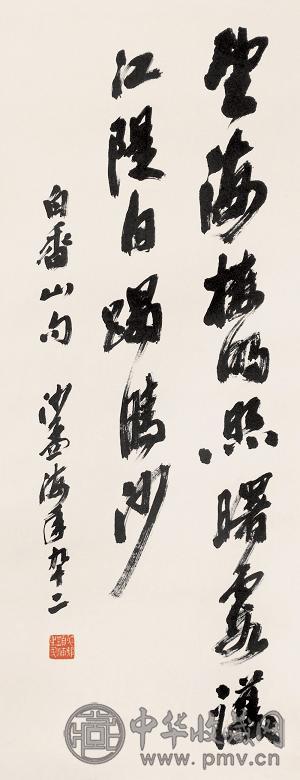 望海樓明照曙霞護
江隄白蹋晴沙
白香山句 沙孟海年九十二
中华收藏网
www.pmv.cn